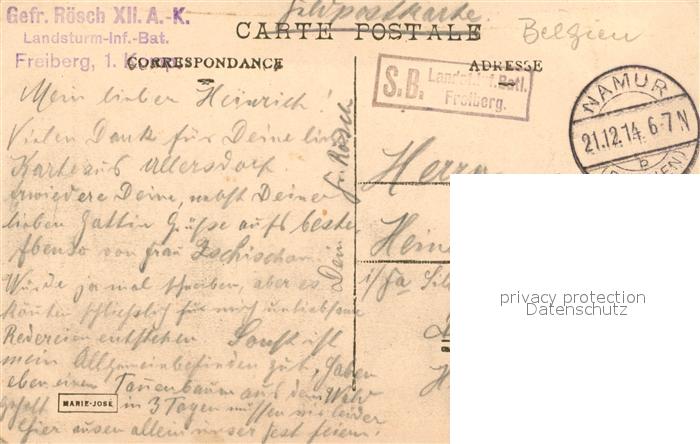 Feldpostkarte.
Gefr. Rösch XII. A.-K.
Landsturm-Inf.-Bat.
Freiberg, 1. Komp.
CARTE POSTALE
Belgien
CORRESPONDANCE
ADRESSE
S.B. Landst. Inf. Batl.
Freiberg.
NAMUR
21.12.14. 6-7 N
b
(BELGIEN)
Mein lieber Heinrich!
Vielen Dank für Deine liebe
Karte aus Ullersdorf.
erwiedere Deine, nebst Deiner
lieben Gattin Grüße aufs beste
Ebenso von Frau
Würde ja mal schreiben, aber es
könnten schließlich für mich unliebsame
Redereien entstehen Sonst ist
mein Allgemeinbefinden gut, haben
eben einen Tannenbaum aus dem Wald
geholt in 3 Tagen müssen wir leider
hier ausen allein unser Fest feiern!
Dein Rösch
Herrn
i/fa
MARIE-JOSÉ
privacy protection
Datenschutz